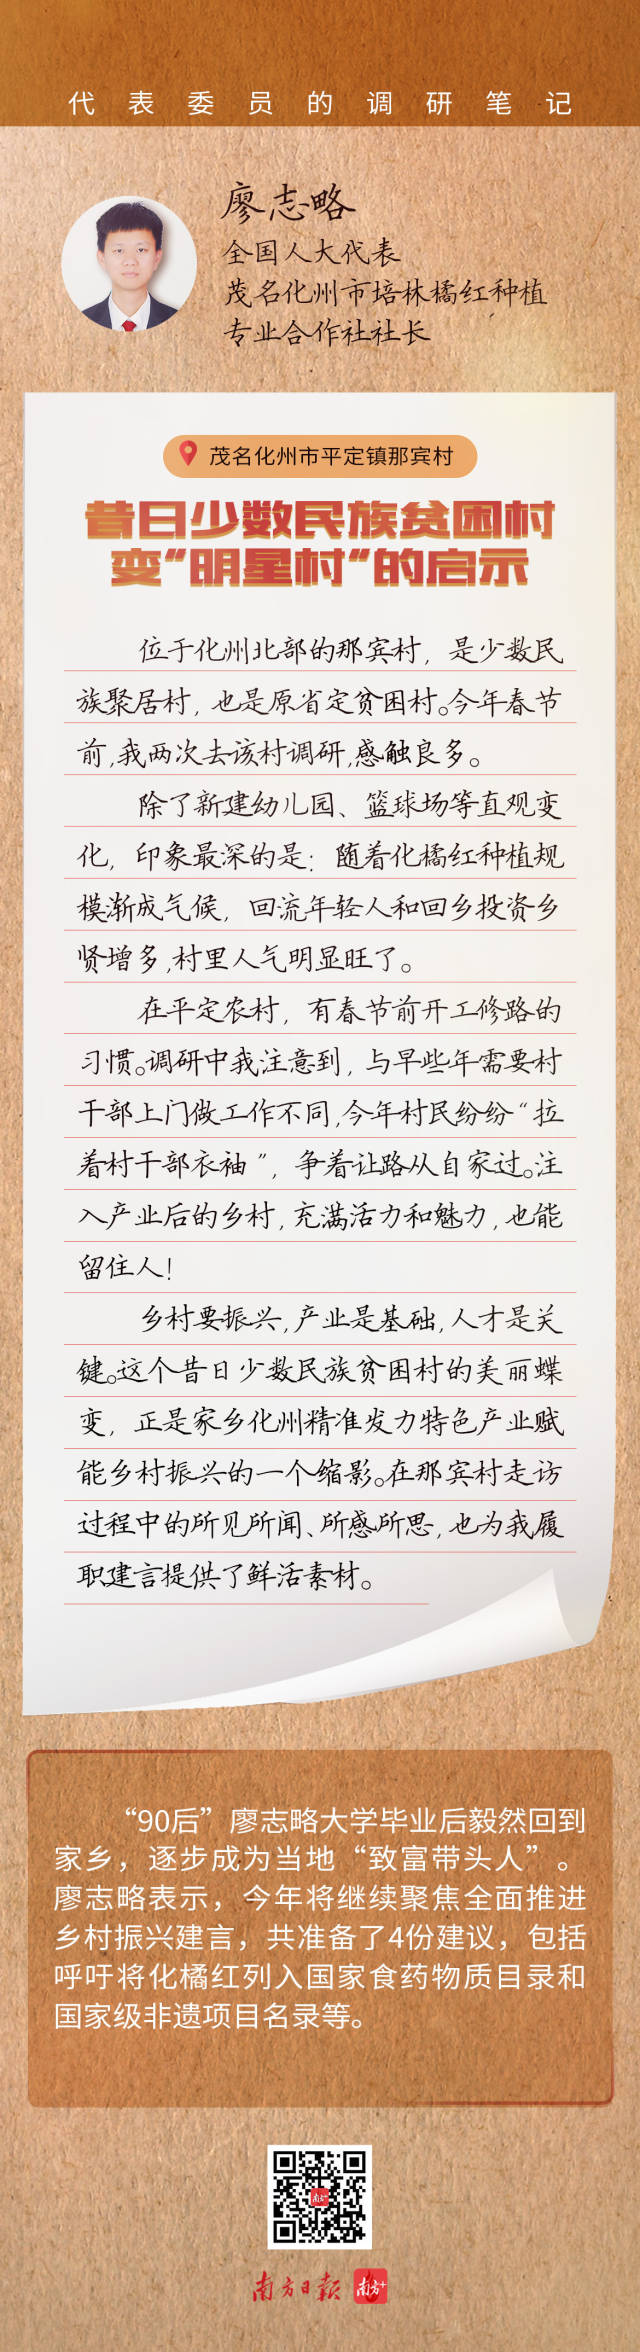 代表委员的调研笔记
廖志略
全国人大代表
茂名化州市培林橘红种植
专业合作社社长
茂名化州市平定镇那宾村
昔日少数民族贫困村
变“明星村”的启示
位于化州北部的那宾村，是少数民
族聚居村，也是原省定贫困村。今年春节
前,我两次去该村调研,感触良多。
除了新建幼儿园、篮球场等直观变
化，印象最深的是：随着化橘红种植规
模渐成气候，回流年轻人和回乡投资乡
贤增多,村里人气明显旺了。
在平定农村，有春节前开工修路的
习惯。调研中我注意到，与早些年需要村
干部上门做工作不同,今年村民纷纷“拉
着村干部衣袖”，争着让路从自家过。注
入产业后的乡村,充满活力和魅力,也能
留住人！
乡村要振兴,产业是基础,人才是关
键。这个昔日少数民族贫困村的美丽蝶
变，正是家乡化州精准发力特色产业赋
能乡村振兴的一个缩影。在那宾村走访
过程中的所见所闻、所感所思,也为我履
职建言提供了鲜活素材。
“90后”廖志略大学毕业后毅然回到
家乡，逐步成为当地“致富带头人”。
廖志略表示，今年将继续聚焦全面推进
乡村振兴建言，共准备了4份建议，包括
呼吁将化橘红列入国家食药物质目录和
国家级非遗项目名录等。
南方日报 南方+